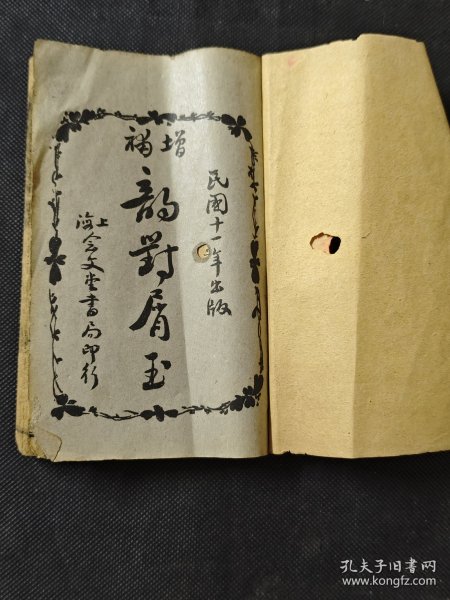 民國十一年出版
增補
韵對屑玉
上海會文堂書局印行
孔夫子旧书网
www.kongfz.com